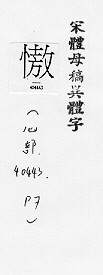 宋體母稿異體字
慠
40443
（心部.
40443.
P7）